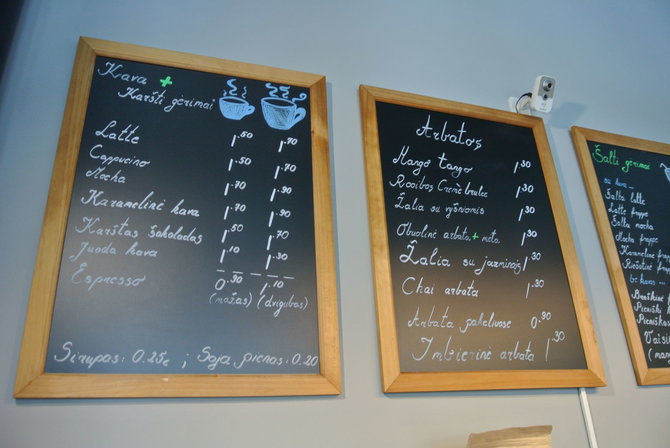 Kava +
Karšti gėrimai
Latte 1.50 1.70
Cappucino 1.50 1.70
Mocha 1.70 1.90
Karamelinė kava 1.70 1.90
Karštas šokoladas 1.50 1.70
Juoda kava 1.10 1.30
Espresso 0.90 1.10
(mažas) (dvigubas)
Sirupas: 0.25€ ; Soja pienas: 0.20
Arbatos
Mango tango 1.30
Rooibos Cremè brulee 1.30
Žalia su vyšniomis 1.30
Obuolinė arbata + mėta 1.30
Žalia su jazminais 1.30
Chai arbata 1.30
Arbata pakeliuose 0.90
Imbierinė arbata 1.30
Šalti gėrimai
su kava
Šalta latte
Latte frappe
Šalta mocha
Mocha frappe
Karamelinė frappe
be kavos